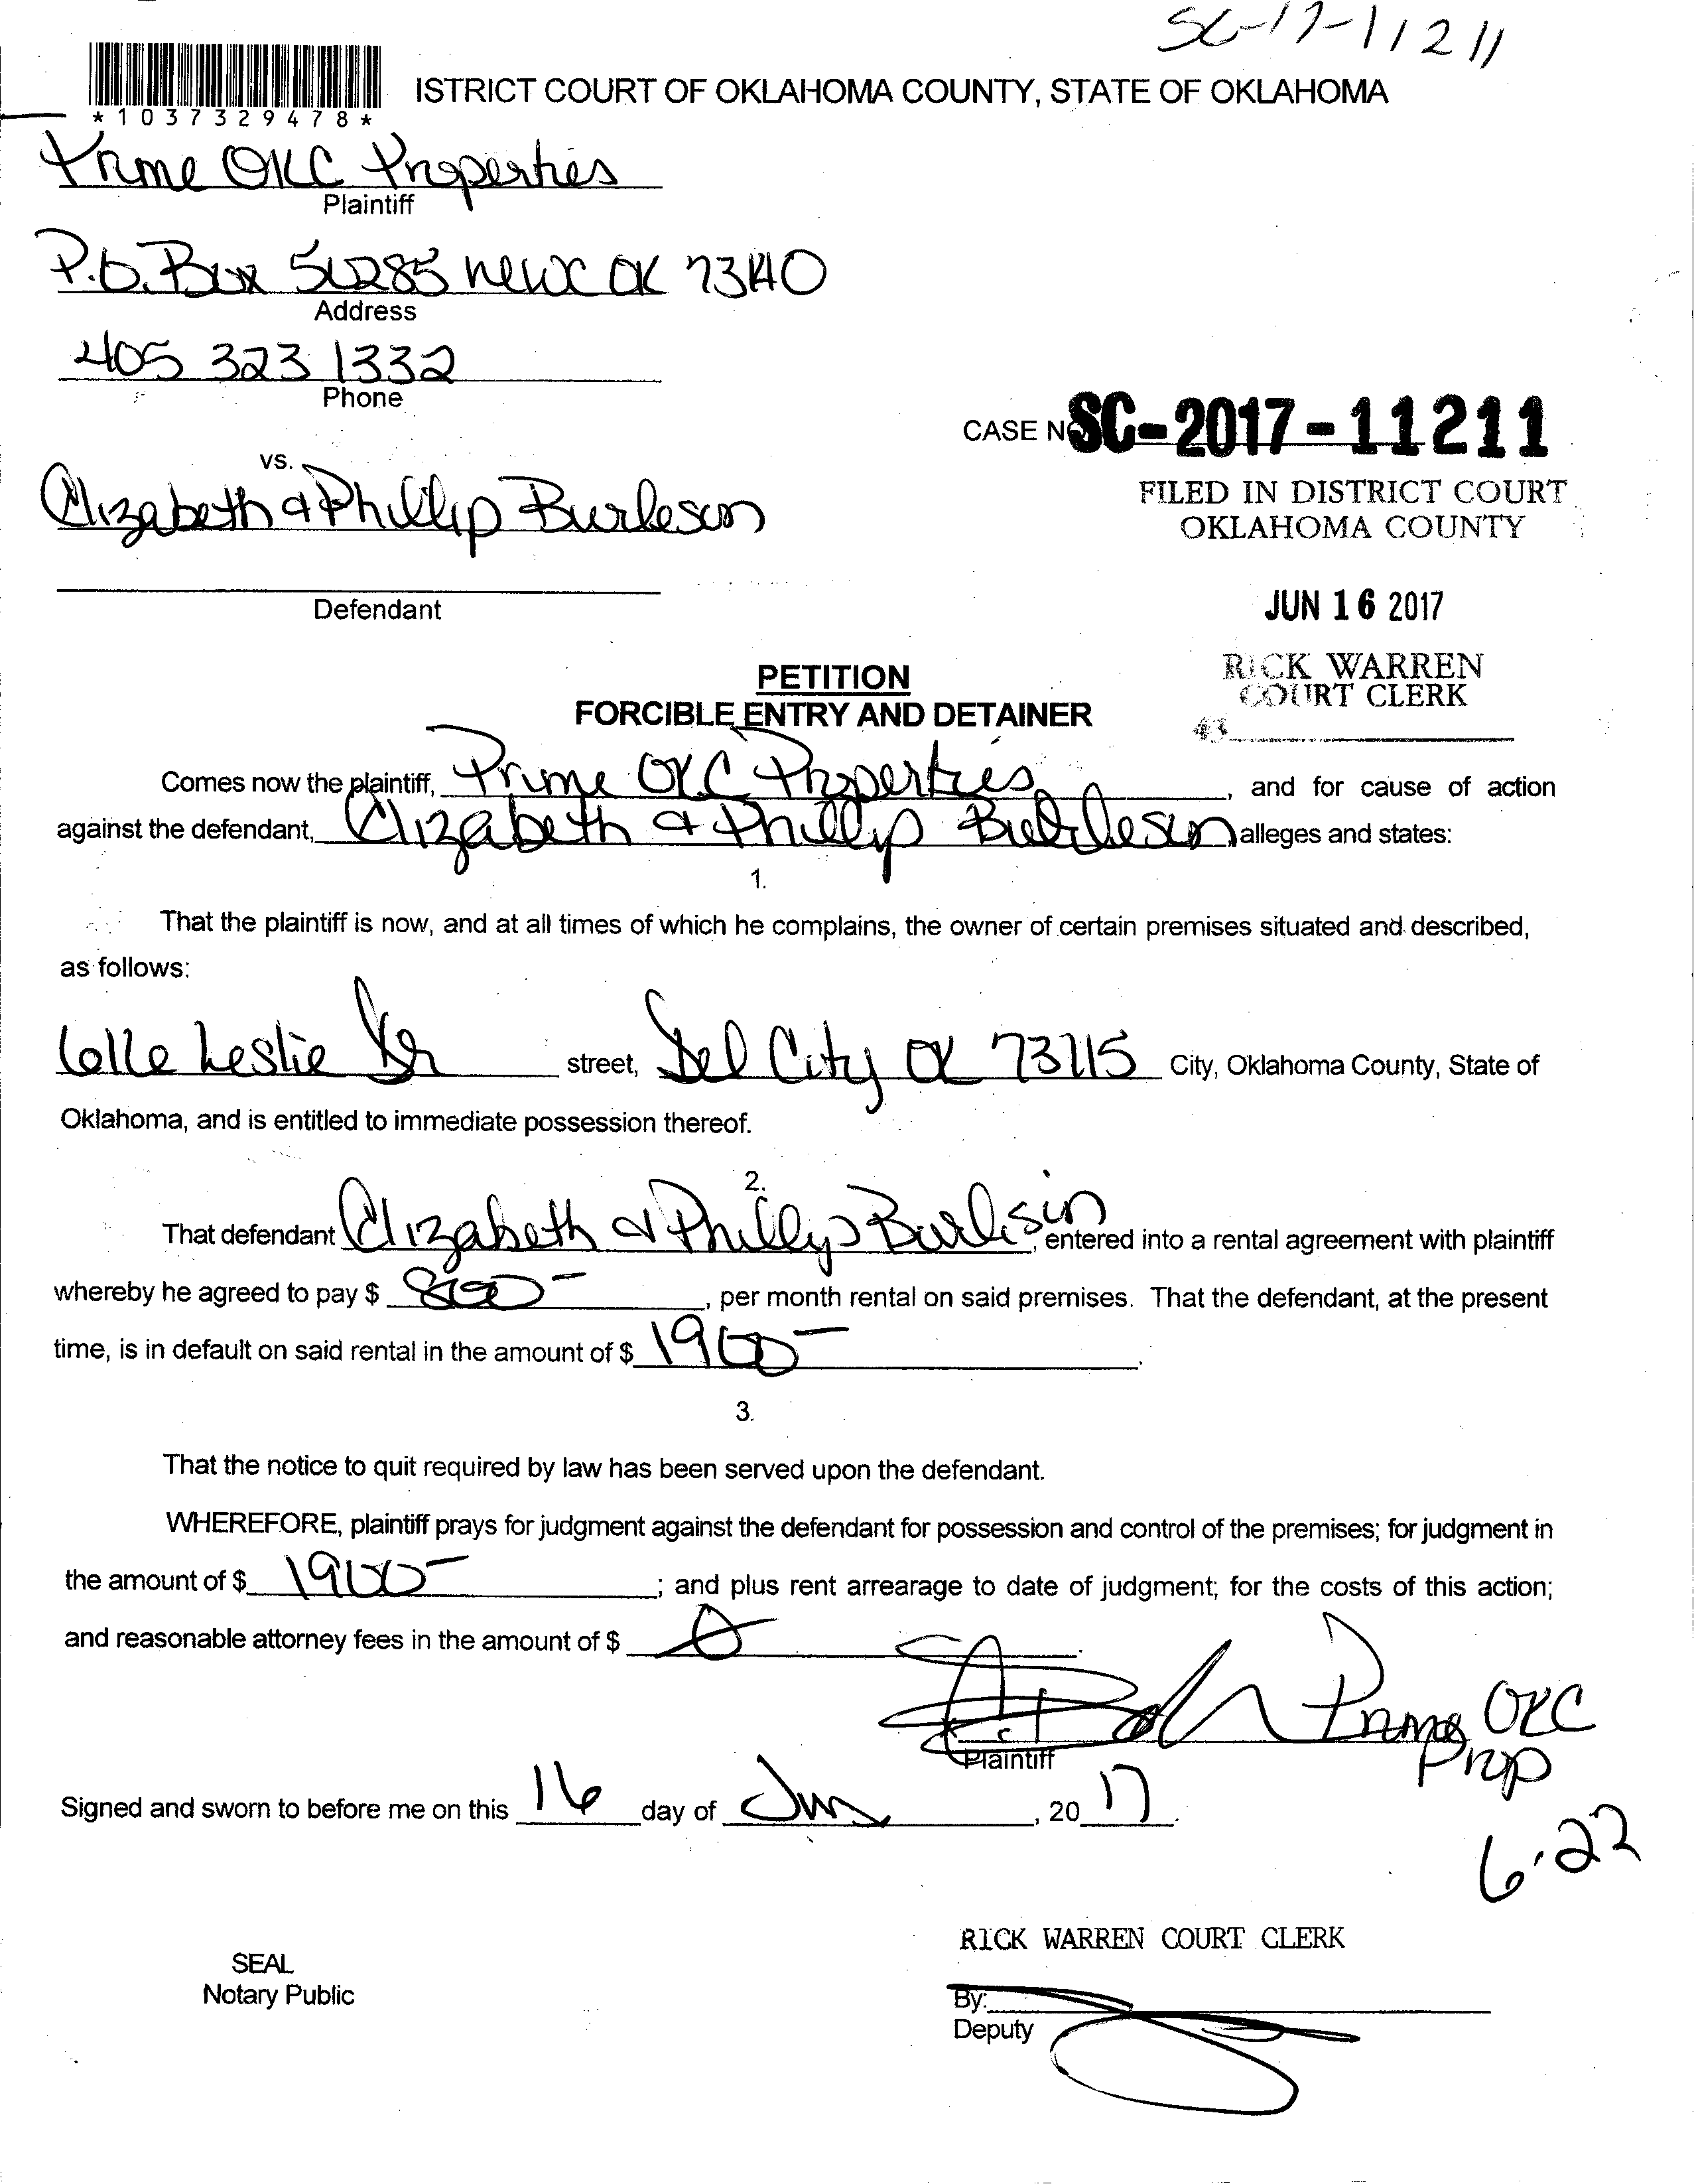 SC-17-11211
ISTRICT COURT OF OKLAHOMA COUNTY, STATE OF OKLAHOMA
*1037329478*
Prime OKC Properties
Plaintiff
P.O. Box OK 73140
Address
405 323 1332
Phone
CASE NO SC-2017-11211
vs.
FILED IN DISTRICT COURT
OKLAHOMA COUNTY
Elizabeth & Phillip Burleson
Defendant
JUN 16 2017
RICK WARREN
COURT CLERK
PETITION
FORCIBLE ENTRY AND DETAINER
Comes now the plaintiff, Prime OKC Properties, and for cause of action
against the defendant, Elizabeth & Phillip Burleson alleges and states:
1.
That the plaintiff is now, and at all times of which he complains, the owner of certain premises situated and described,
as follows:
Leslie Dr street, Del City OK 73115 City, Oklahoma County, State of
Oklahoma, and is entitled to immediate possession thereof.
2.
That defendant Elizabeth & Phillip Burleson, entered into a rental agreement with plaintiff
whereby he agreed to pay $ , per month rental on said premises. That the defendant, at the present
time, is in default on said rental in the amount of $ 1900-.
3.
That the notice to quit required by law has been served upon the defendant.
WHEREFORE, plaintiff prays for judgment against the defendant for possession and control of the premises; for judgment in
the amount of $ 1900-; and plus rent arrearage to date of judgment; for the costs of this action;
and reasonable attorney fees in the amount of $ 0.
Prime OKC
Prop
Plaintiff
Signed and sworn to before me on this 16 day of Jun, 20 17.
6-22
RICK WARREN COURT CLERK
SEAL
Notary Public
By:
Deputy